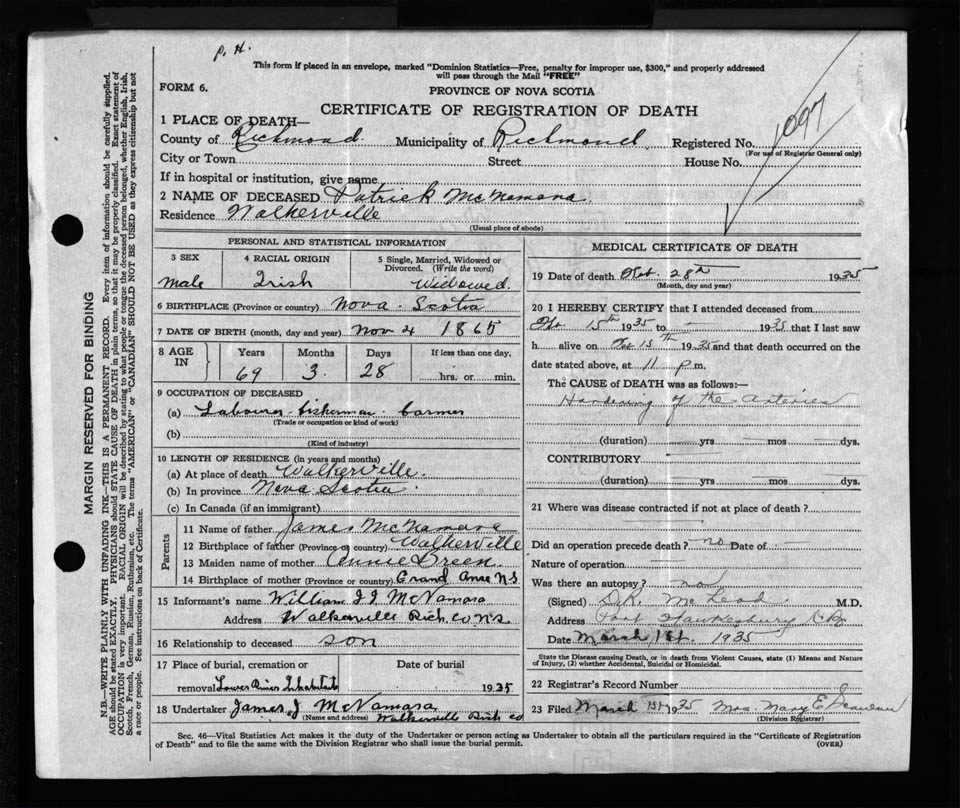 P. H.
This form if placed in an envelope, marked "Dominion Statistics—Free, penalty for improper use, $300," and properly addressed
will pass through the Mail "FREE"
FORM 6.
PROVINCE OF NOVA SCOTIA
CERTIFICATE OF REGISTRATION OF DEATH
1097
1 PLACE OF DEATH—
County of Richmond Municipality of Richmond Registered No.
(For use of Registrar General only)
City or Town Street House No.
If in hospital or institution, give name
2 NAME OF DECEASED Patrick McNamara
Residence Walkerville
(Usual place of abode)
PERSONAL AND STATISTICAL INFORMATION
3 SEX 4 RACIAL ORIGIN 5 Single, Married, Widowed or
Divorced. (Write the word)
male Irish Widowed.
6 BIRTHPLACE (Province or country) Nova Scotia
7 DATE OF BIRTH (month, day and year) Nov 4 1865
8 AGE IN Years Months Days If less than one day,
69 3 28 hrs. or min.
9 OCCUPATION OF DECEASED
(a) Labourer - fisherman - farmer
(Trade or occupation or kind of work)
(b)
(Kind of industry)
10 LENGTH OF RESIDENCE (in years and months)
(a) At place of death Walkerville.
(b) In province Nova Scotia
(c) In Canada (if an immigrant)
Parents
11 Name of father James McNamara
12 Birthplace of father (Province or country) Walkerville
13 Maiden name of mother Annie Breen
14 Birthplace of mother (Province or country) Grand Anse N.S
15 Informant's name William J J McNamara
Address Walkerville Rich. Co N.S
16 Relationship to deceased son
17 Place of burial, cremation or Date of burial
removal Lower River Inhabitants 1935
18 Undertaker James J McNamara
(Name and address) Walkerville Rich Co
MEDICAL CERTIFICATE OF DEATH
19 Date of death Feb. 28th 1935
(Month, day and year)
20 I HEREBY CERTIFY that I attended deceased from
Feb. 15th 1935 to — 1935 that I last saw
h alive on Feb 15th 1935 and that death occurred on the
date stated above, at 11 p.m.
The CAUSE of DEATH was as follows:—
Hardening of the Arteries
(duration) yrs mos dys.
CONTRIBUTORY
(duration) yrs mos dys.
21 Where was disease contracted if not at place of death?
Did an operation precede death? no Date of
Nature of operation
Was there an autopsy? no
(Signed) McLeod M.D.
Address Port Hawkesbury C.B.
Date March 1st. 1935
State the Disease causing Death, or in death from Violent Causes, state (1) Means and Nature
of Injury, (2) whether Accidental, Suicidal or Homicidal.
22 Registrar's Record Number
23 Filed March 1st 1935 Mrs. Mary E
(Division Registrar)
Sec. 46—Vital Statistics Act makes it the duty of the Undertaker or person acting as Undertaker to obtain all the particulars required in the "Certificate of Registration
of Death" and to file the same with the Division Registrar who shall issue the burial permit.
(OVER)
MARGIN RESERVED FOR BINDING
N.B.—WRITE PLAINLY WITH UNFADING INK—THIS IS A PERMANENT RECORD. Every item of information should be carefully supplied.
AGE should be stated EXACTLY. PHYSICIANS should STATE CAUSE OF DEATH in plain terms, so that it may be properly classified. Exact statement of
OCCUPATION is very important. RACIAL ORIGIN will be described by stating to what people or tongue the deceased person belonged, whether English, Irish,
Scotch, French, German, Russian, Ruthenian, etc. The terms "AMERICAN" or "CANADIAN" SHOULD NOT BE USED as they express citizenship but not
a race or people. See instructions on back of Certificate.